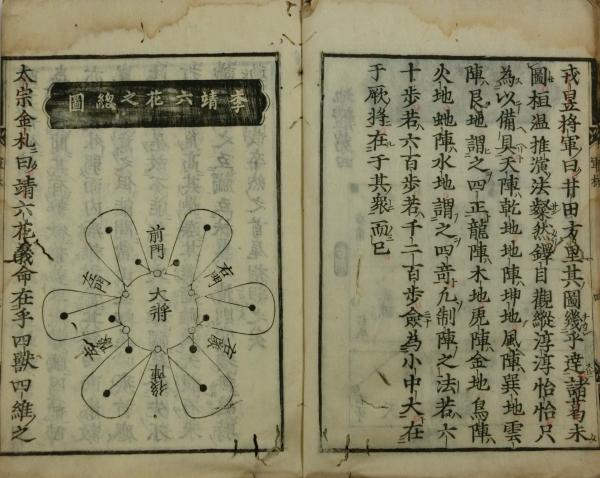 戎昱將軍曰井田方里其圖幾乎逹諸葛未
圖桓温推演法粲然鐸自觀縱淳淳怡怡只
為以備具天陣乾地地陣坤地風陣巽地雲
陣艮地謂之四正龍陣木地虎陣金地鳥陣
火地虵陣水地謂之四竒九制陣之法若六
十歩若六百歩若千二百歩僉為小中大在
于厥將在于其衆而已
李靖六花之總圖
前門
右門
左門
大將
後陣
太宗金札曰靖六花義命在乎四獸四維之